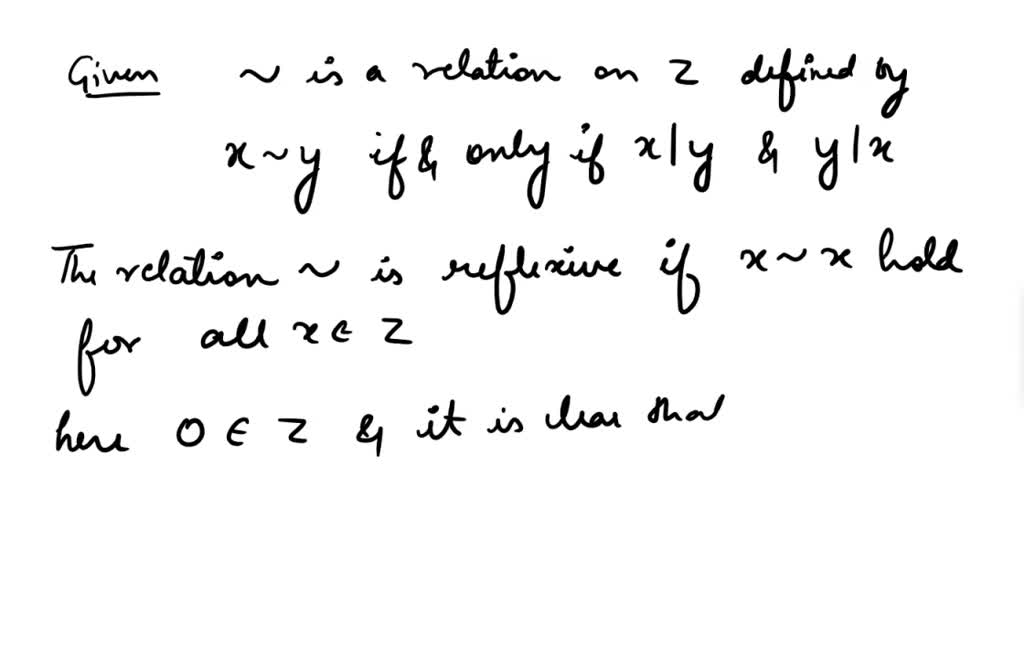 Given ~ is a relation on Z defined by
x~y if & only if x|y & y|x
The relation ~ is reflexive if x~x hold
for all x ∈ Z
here 0 ∈ Z & it is clear that